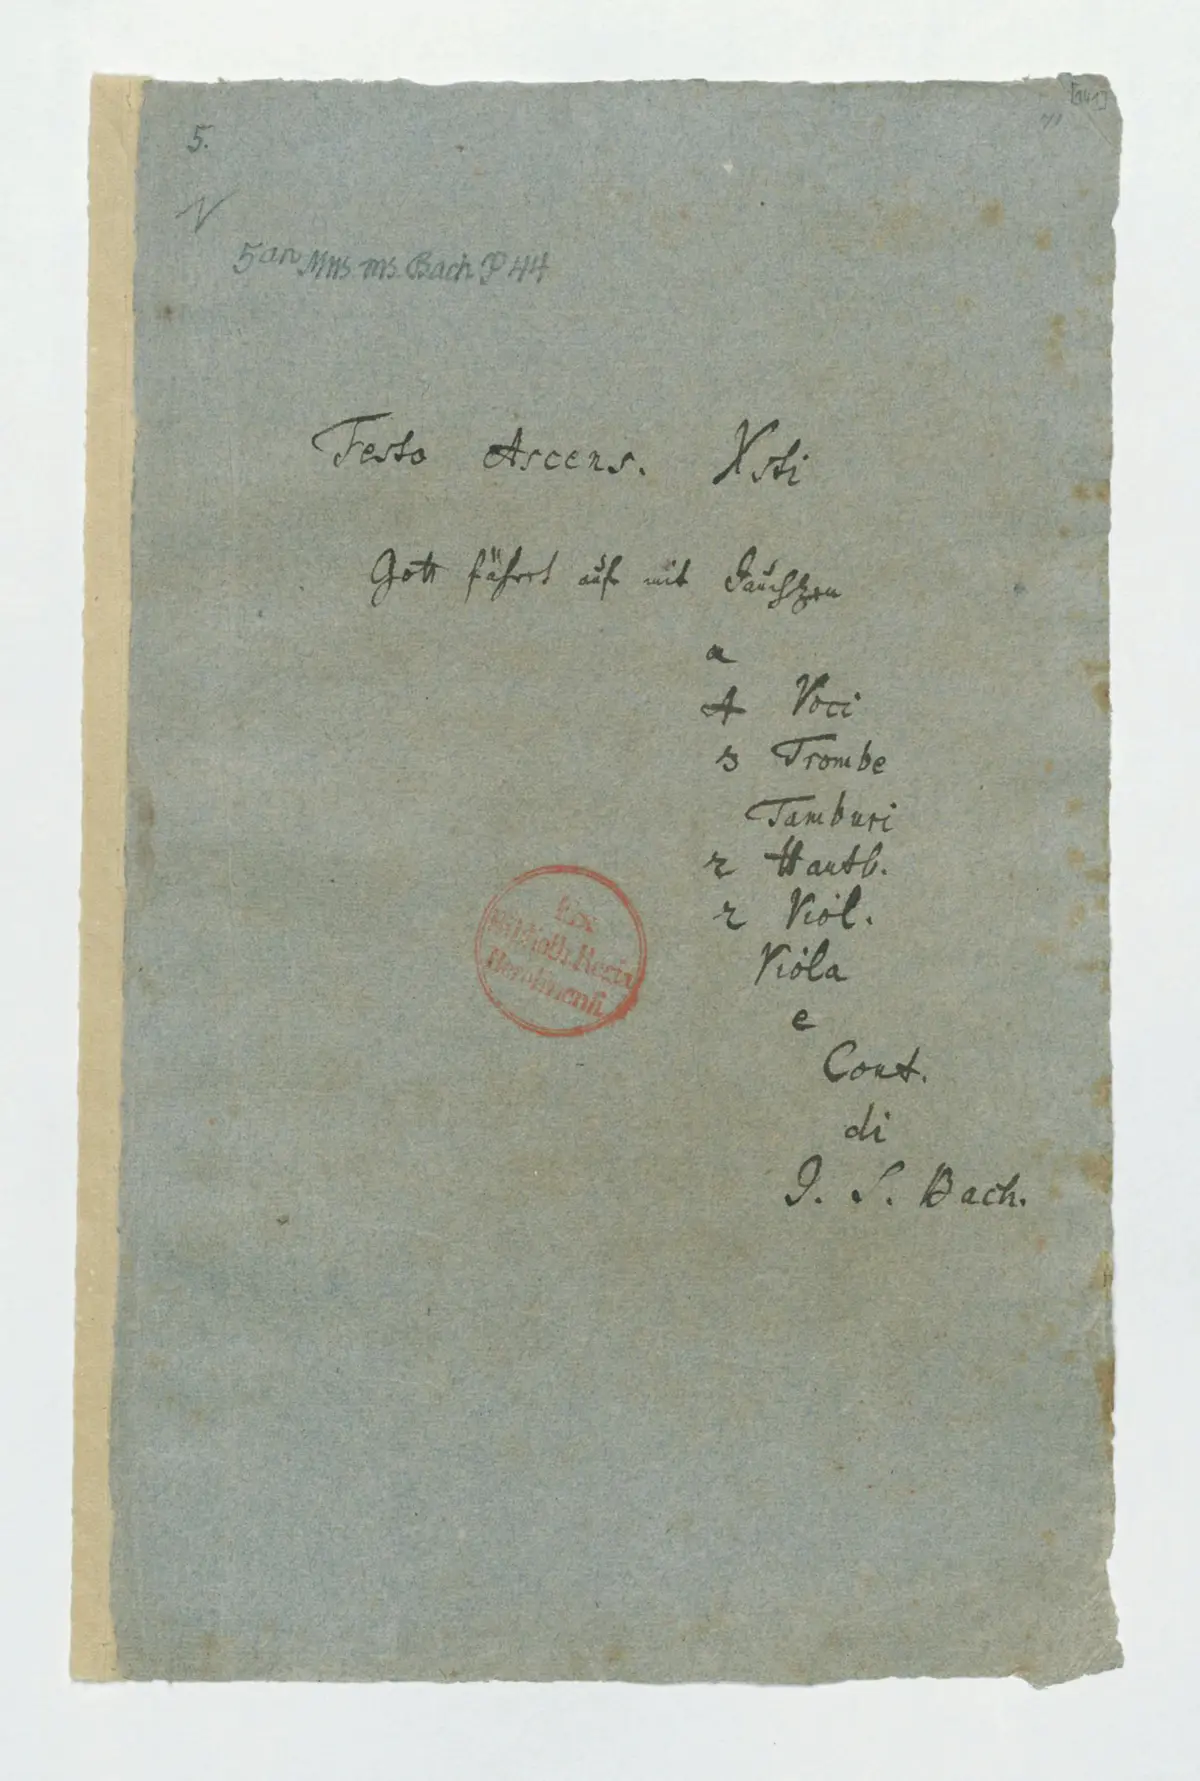 [141]
71
5.
5 an Mus. ms. Bach P 44
Festo Ascens. Xsti
Gott fähret auf mit Jauchzen
a
4 Voci
3 Trombe
Tamburi
2 Hautb.
2 Viol.
Viola
e
Cont.
di
J. S. Bach.
Ex
Biblioth. Regia
Berolinenſi.